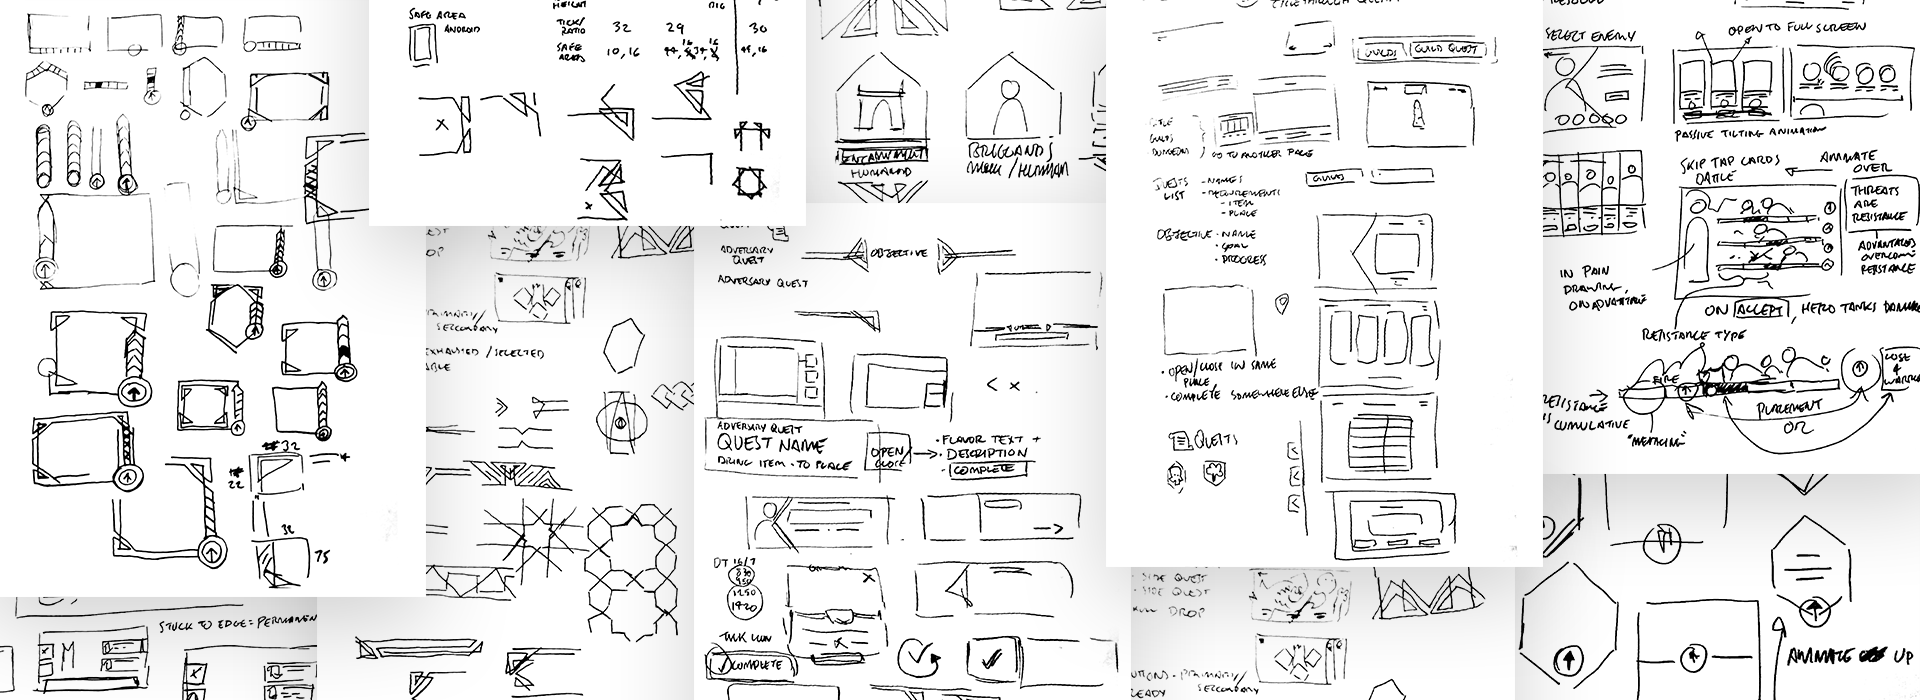 SAFE AREA
ANDROID
HEIGHT
TICK/
RATIO
32
29
30
SAFE
AREAS
10,16
ENCAMPMENT
HUMANOID
BRIGANDS
/HUMAN
GUILDS
GUILD QUEST
TITLE
GUILDS
DUNGEON
GO TO ANOTHER PAGE
QUESTS
LIST
- NAMES
- REQUIREMENTS
- ITEM
- PLACE
GUILDS
OBJECTIVE
- NAME
- GOAL
- PROGRESS
• OPEN/CLOSE IN SAME
PLACE
• COMPLETE SOMEWHERE ELSE
QUESTS
SELECT ENEMY
OPEN TO FULL SCREEN
PASSIVE TILTING ANIMATION
SKIP TAP CARDS
BATTLE
ANIMATE
OVER
THREATS
ARE
RESISTANCE
ADVANTAGES
OVERCOME
RESISTANCE
IN PAIN
DRAWING,
ON ADVANTAGE
ON ACCEPT, HERO TANKS DAMAGE
RESISTANCE TYPE
FIRE
RESISTANCE
IS CUMULATIVE
"MEDICINE"
PLACEMENT
OR
ANIMATE
UP
ADVERSARY
QUEST
OBJECTIVE
ADVERSARY QUEST
PRIMARY/
SECCONDARY
EXHAUSTED/SELECTED
ABLE
< x
ADVERSARY QUEST
QUEST NAME
BRING ITEM • TO PLACE
OPEN
CLOSE
• FLAVOR TEXT +
• DESCRIPTION
• COMPLETE
DT 16/9
1250
1920
COMPLETE
32
22
32
75
STUCK TO EDGE = PERMANEN
- SIDE QUEST
- SIDE QUEST
DROP
PRIMARY/
SECCONDARY
READY